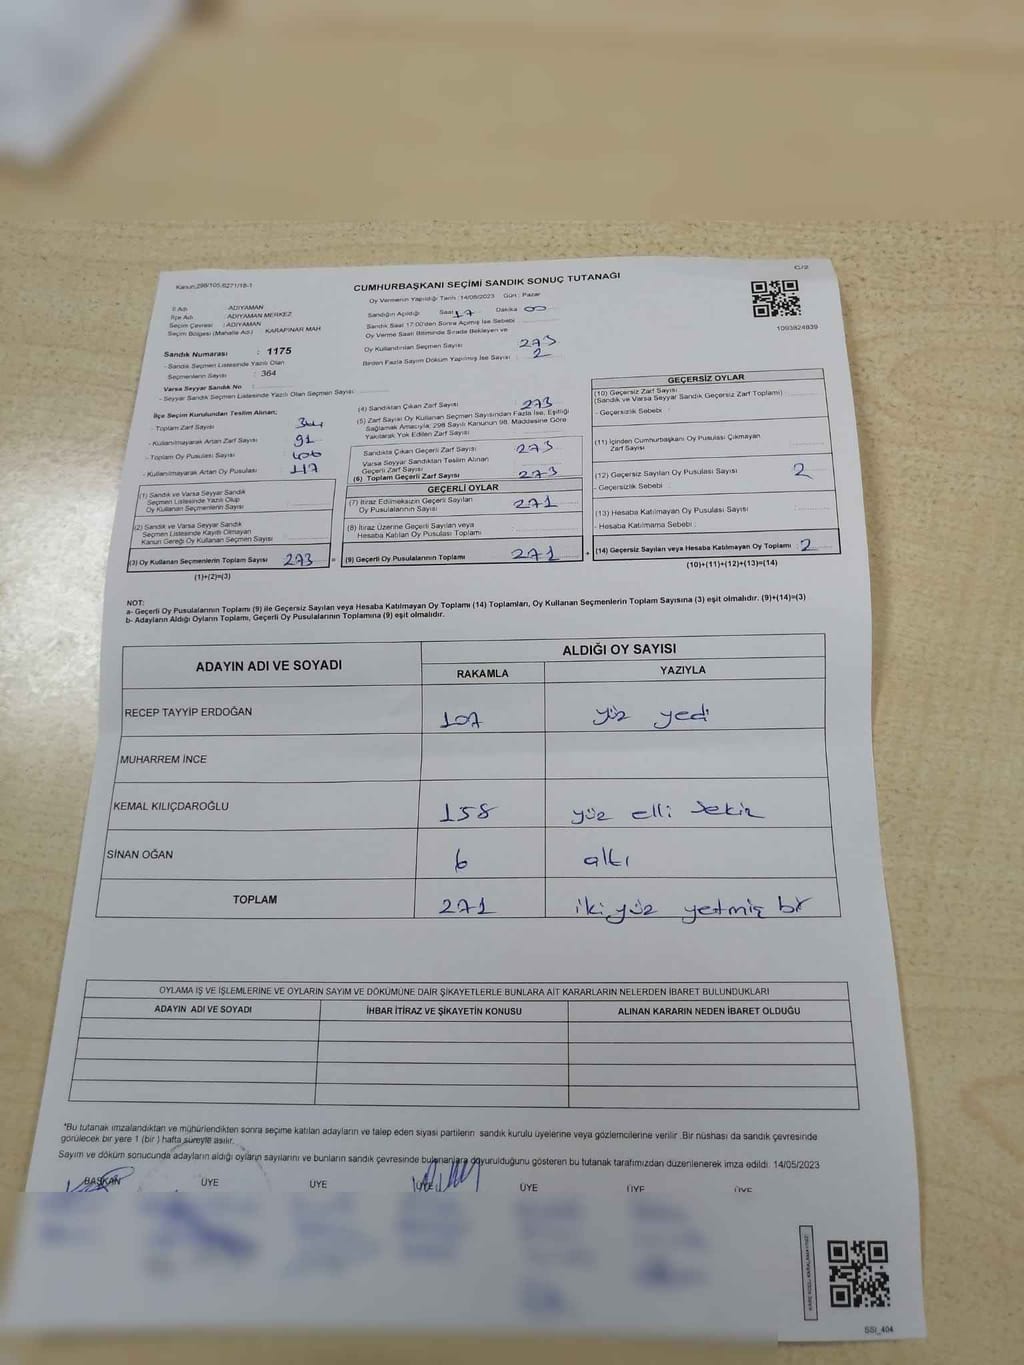 C/2
Kanun;298/105,6271/18-1
CUMHURBAŞKANI SEÇİMİ SANDIK SONUÇ TUTANAĞI
Oy Vermenin Yapıldığı Tarih :14/05/2023 Gün : Pazar
İl Adı : ADIYAMAN
İlçe Adı : ADIYAMAN MERKEZ
Seçim Çevresi : ADIYAMAN
Seçim Bölgesi (Mahalle Ad.) : KARAPINAR MAH
Sandığın Açıldığı Saat 17 Dakika 00
Sandık Saat 17:00'den Sonra Açılmış İse Sebebi
Oy Verme Saati Bitiminde Sırada Bekleyen ve
Oy Kullandırılan Seçmen Sayısı 273
Birden Fazla Sayım Döküm Yapılmış İse Sayısı : 2
1093824839
Sandık Numarası : 1175
- Sandık Seçmen Listesinde Yazılı Olan
Seçmenlerin Sayısı : 364
Varsa Seyyar Sandık No :
- Seyyar Sandık Seçmen Listesinde Yazılı Olan Seçmen Sayısı:
İlçe Seçim Kurulundan Teslim Alınan;
- Toplam Zarf Sayısı
- Kullanılmayarak Artan Zarf Sayısı : 91
- Toplam Oy Pusulası Sayısı : 406
- Kullanılmayarak Artan Oy Pusulası : 117
(1) Sandık ve Varsa Seyyar Sandık
Seçmen Listesinde Yazılı Olup
Oy Kullanan Seçmenlerin Sayısı
(2) Sandık ve Varsa Seyyar Sandık
Seçmen Listesinde Kayıtlı Olmayan
Kanun Gereği Oy Kullanan Seçmen Sayısı
(3) Oy Kullanan Seçmenlerin Toplam Sayısı 273 =
(1)+(2)=(3)
(4) Sandıktan Çıkan Zarf Sayısı : 273
(5) Zarf Sayısı Oy Kullanan Seçmen Sayısından Fazla İse, Eşitliği
Sağlamak Amacıyla; 298 Sayılı Kanunun 98. Maddesine Göre
Yakılarak Yok Edilen Zarf Sayısı
Sandıkta Çıkan Geçerli Zarf Sayısı 273
Varsa Seyyar Sandıktan Teslim Alınan
Geçerli Zarf Sayısı
(6) Toplam Geçerli Zarf Sayısı 273
GEÇERLİ OYLAR
(7) İtiraz Edilmeksizin Geçerli Sayılan
Oy Pusulalarının Sayısı 271
(8) İtiraz Üzerine Geçerli Sayılan veya
Hesaba Katılan Oy Pusulası Toplamı
(9) Geçerli Oy Pusulalarının Toplamı 271 +
GEÇERSİZ OYLAR
(10) Geçersiz Zarf Sayısı
(Sandık ve Varsa Seyyar Sandık Geçersiz Zarf Toplamı)
- Geçersizlik Sebebi :
(11) İçinden Cumhurbaşkanı Oy Pusulası Çıkmayan
Zarf Sayısı
(12) Geçersiz Sayılan Oy Pusulası Sayısı 2
- Geçersizlik Sebebi :
(13) Hesaba Katılmayan Oy Pusulası Sayısı
- Hesaba Katılmama Sebebi :
(14) Geçersiz Sayılan veya Hesaba Katılmayan Oy Toplamı : 2
(10)+(11)+(12)+(13)=(14)
NOT:
a- Geçerli Oy Pusulalarının Toplamı (9) ile Geçersiz Sayılan veya Hesaba Katılmayan Oy Toplamı (14) Toplamları, Oy Kullanan Seçmenlerin Toplam Sayısına (3) eşit olmalıdır. (9)+(14)=(3)
b- Adayların Aldığı Oyların Toplamı, Geçerli Oy Pusulalarının Toplamına (9) eşit olmalıdır.
ADAYIN ADI VE SOYADI ALDIĞI OY SAYISI
RAKAMLA YAZIYLA
RECEP TAYYİP ERDOĞAN 107 yüz yedi
MUHARREM İNCE
KEMAL KILIÇDAROĞLU 158 yüz elli sekiz
SİNAN OĞAN 6 altı
TOPLAM 271 iki yüz yetmiş bir
OYLAMA İŞ VE İŞLEMLERİNE VE OYLARIN SAYIM VE DÖKÜMÜNE DAİR ŞİKAYETLERLE BUNLARA AİT KARARLARIN NELERDEN İBARET BULUNDUKLARI
ADAYIN ADI VE SOYADI İHBAR İTİRAZ VE ŞİKAYETİN KONUSU ALINAN KARARIN NEDEN İBARET OLDUĞU
*Bu tutanak imzalandıktan ve mühürlendikten sonra seçime katılan adayların ve talep eden siyasi partilerin sandık kurulu üyelerine veya gözlemcilerine verilir .Bir nüshası da sandık çevresinde
görülecek bir yere 1 (bir ) hafta süreyle asılır.
Sayım ve döküm sonucunda adayların aldığı oyların sayılarını ve bunların sandık çevresinde bulunanlara duyurulduğunu gösteren bu tutanak tarafımızdan düzenlenerek imza edildi. 14/05/2023
BAŞKAN ÜYE ÜYE ÜYE ÜYE ÜYE ÜYE
SSI_404